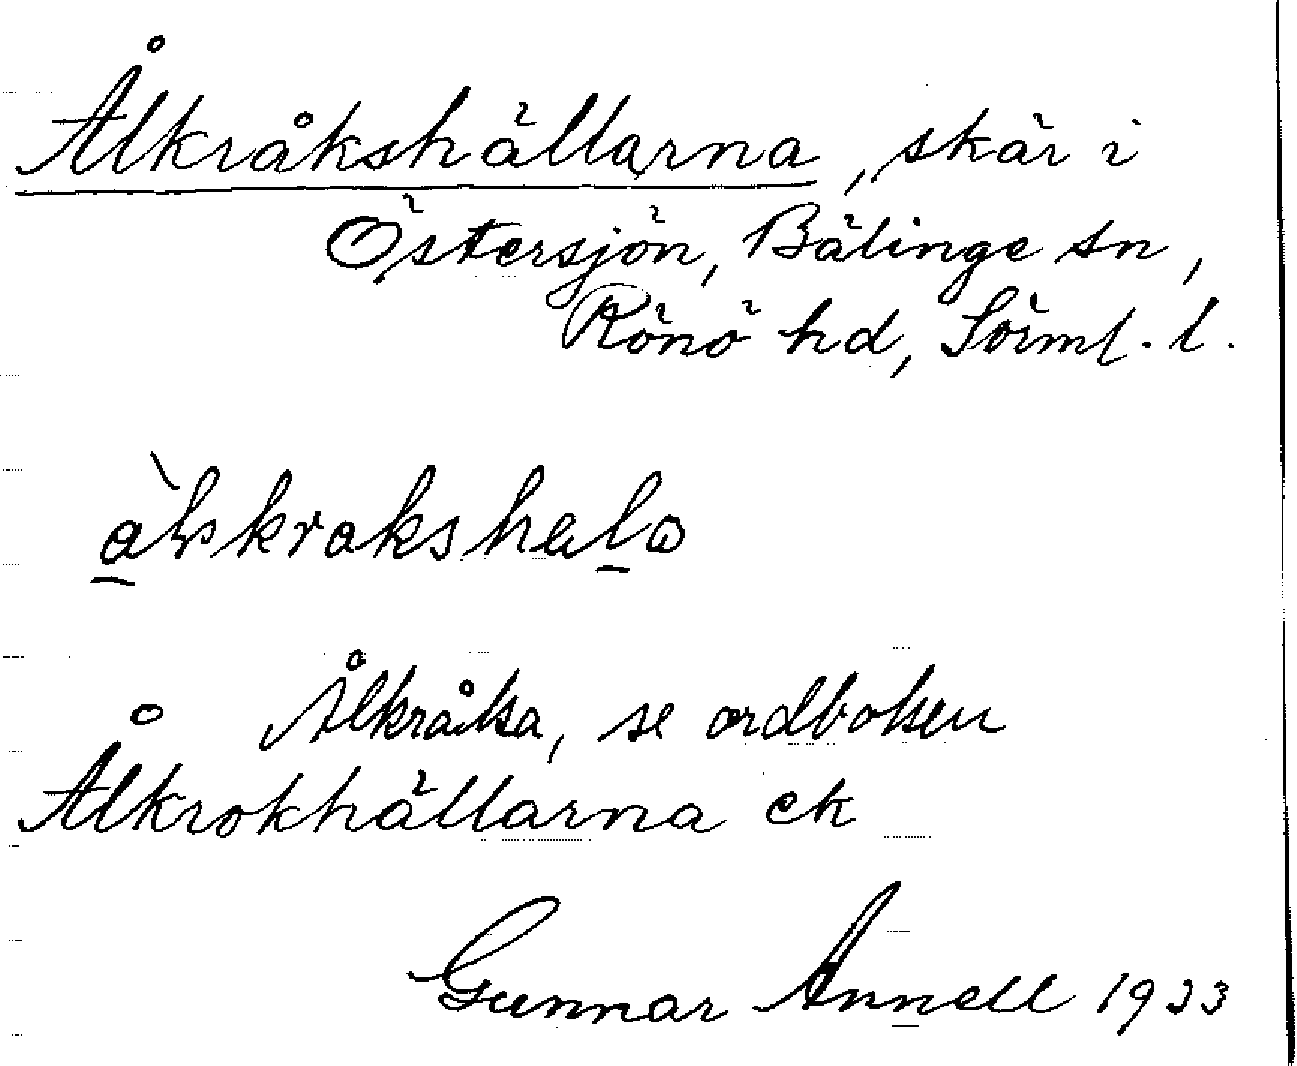 Ålkråkshällarna, skär i
Östersjön, Bälinge sn,
Rönö hd, Sörml. l.
Ålkråka, se ordboken
Ålkrokhällarna ek
Gunnar Annell 1933